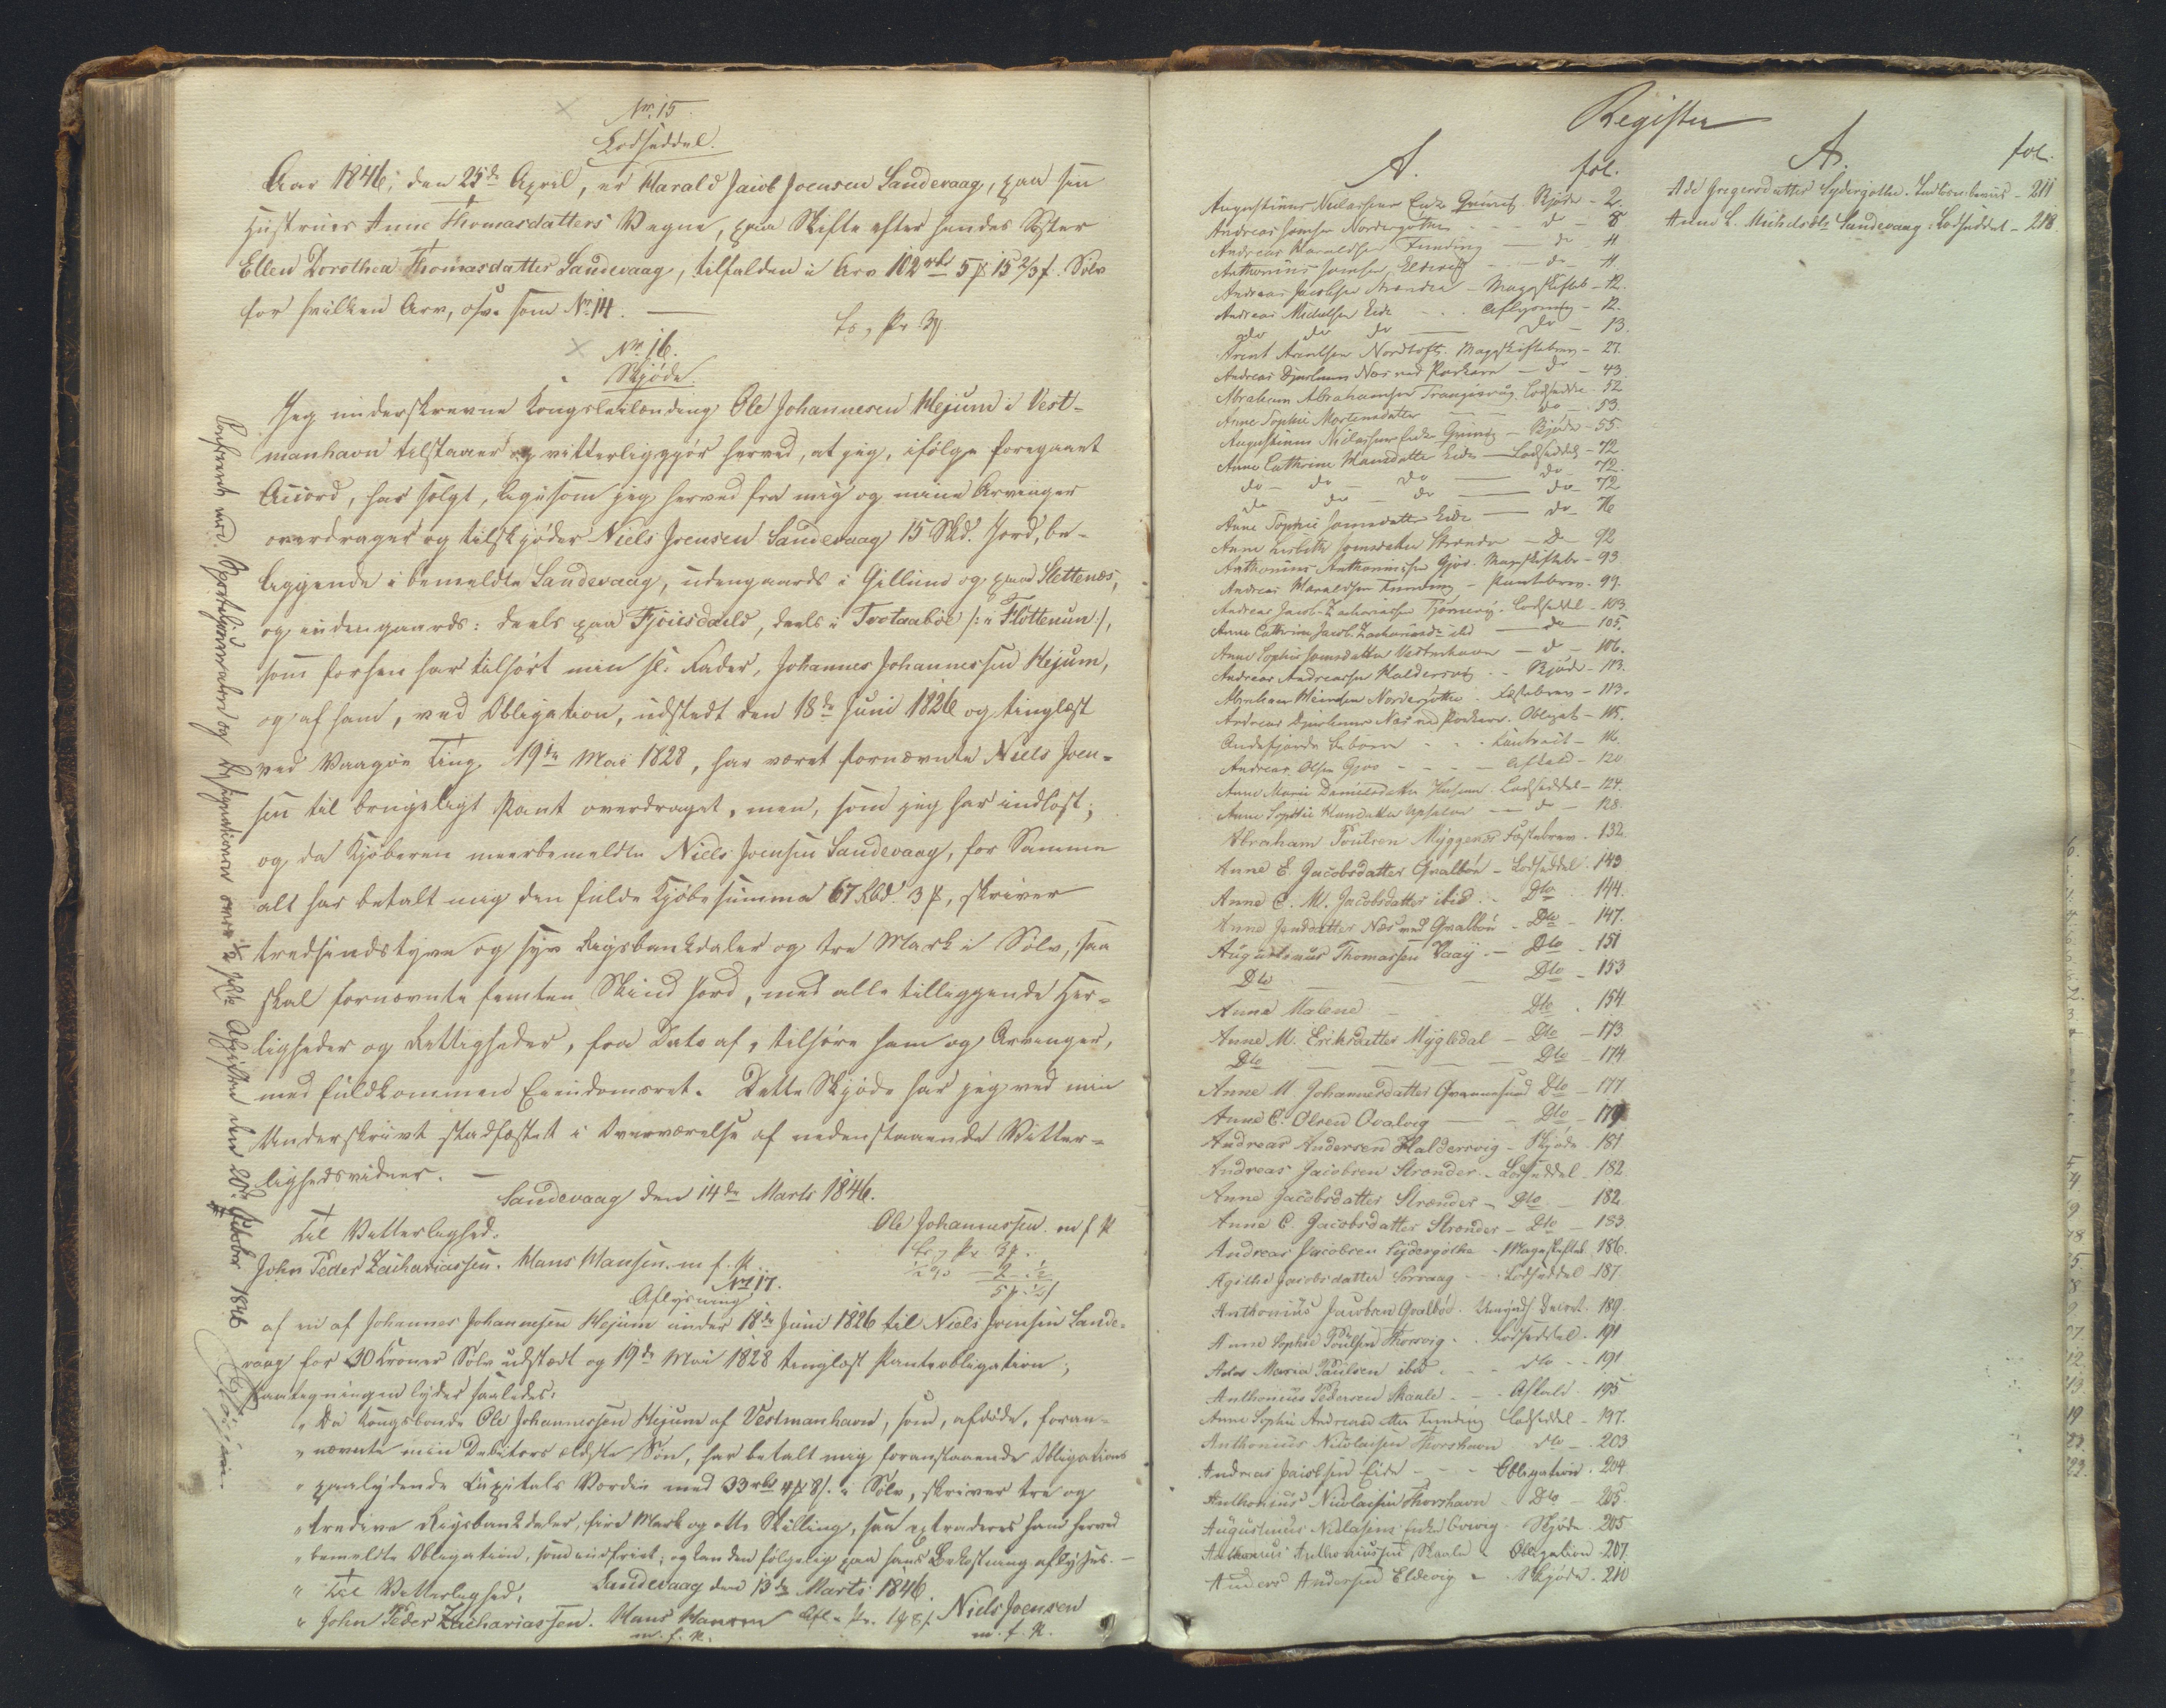 Nr. 15.
Lodseddel.
Aar 1846, den 25de April, er Harald Jacob Joensen Sandevaag, paa sin
Hustrues Anne Thomasdatters Vegne, paa Skifte efter hendes Søster
Ellen Dorothea Thomasdatter Sandevaag, tilfalden i Arv 102 rbd 5 ₻ 15 2/3 ß. Sølv
for hvilken Arv, osv. som Nr. 14.
Nr. 16.
Skjøde.
Jeg underskrevne Kongsleilænding Ole Johannesen Hejum i Vest-
manhavn tilstaaer og vitterliggjør herved, at jeg, ifølge foregaaet
Accord, har solgt, ligesom jeg herved fra mig og mine Arvinger
overdrager og tilskjøder Niels Joensen Sandevaag 15 Skd. Jord, be-
liggende i bemeldte Sandevaag, udengaards i Gillund og paa Slettenæs,
og indengaards: deels paa Fjoiisdæld, deels i Tvotaabøe /: i Flôttenum :/,
som forhen har tilhørt min sl. Fader, Johannes Johannessen Hejum,
og af ham, ved Obligation, udstedt den 18de Juni 1826 og tinglæst
ved Vaagøe Ting 19de Mai 1828, har været fornævnte Niels Joen-
sen til brugeligt Pant overdraget, men, som jeg har indløst;
og da Kjøberen meerbemeldte Niels Joensen Sandevaag, for Samme
alt har betalt mig den fulde Kjøbesumma 67 Rbd. 3 ₻, skriver
tredsindstyve og syv Rigsbankdaler og tre Mark i Sølv, saa
skal fornævnte femten Skind Jord, med alle tilliggende Her-
ligheder og Rettigheder, fra Dato af, tilhøre ham og Arvinger,
med fuldkommen Eiendomsret. Dette Skjøde har jeg ved min
Underskrivt stadfæstet i Overværelse af nedenstaaende Vitter-
lighedsvidner.
Sandevaag den 14de Marts 1846.
Til Vitterlighed.
Ole Johannessen. m f P
John Peder Zachariassen. Hans Hansen. m. f. P.
Nr. 17.
Aflysning
af en af Johannes Johannesen Hejum under 18de Juni 1826 til Niels Joensen Sande-
vaag for 30 Kroner Sølv udstædt og 19de Mai 1828 tinglæst Panteobligation;
Paategningen lyder saaledes:
" Da Kongsbonde Ole Johannessen Hejum af Vestmanhavn, som, afdøde, foran-
" nævnte min Debitors ældste Søn, har betalt mig foranstaaende Obligations
" paalydende Capitals Værdie med 33 rbd 4 ₻ 8 ß. i Sølv, skriver tre og
" tredive Rigsbankdaler, fire Mark og otte Skilling, saa extraderes ham herved
" bemeldte Obligation, som indfriet, og kan den følgelig paa hans Bekostning aflyses.
" Til Vitterlighed, Sandevaag den 13de Marts 1846.
" John Peder Zachariassen. Hans Hansen Niels Joensen
m. f. P. m. f. P.
Register
A. fol.
Augustinus Nielassens Enke Skjøde - 2.
Andreas Joensen Nordregøthe - do - 8
Andreas Haraldsen Funding - do - 11
Anthonius Joensen Eldevig - do - 11
Andreas Jacobsen Strænder - Mageskifteb - 12.
Andreas Michelsen Eide - Aflysning - 12.
do do do do - 13.
Arent Arentsen Nordtofte. Mageskiftebrev - 27.
Andreas Djurhuus Næs ved Porkere - do - 43
Abraham Abrahamsen Trangisvaag. Lodseddel - 52
Anne Sophie Mortensdatter - do - 53.
Augustinus Nielassens Enke - Skjøde - 55.
Anne Cathrine Hansdatter Eide - Lodseddel - 72
do - do - do - do - 72.
do do do - do - 72
Anne Sophie Joensdatter Eide - do - 76
Anne Lisbeth Joensdatter Strænder - D - 92
Anthonius Anthoniussen Gjov. Mageskiftebr - 93.
Andreas Haraldsen Funding - Pantebrev - 99.
Andreas Jacob Zachariasen Fjørnevig. Lodseddel - 103.
Anne Cathrine Jacob. Zachariasd. ibd - do - 105.
Anne Sophie Joensdatter Vestmhavn - d - 106.
Andreas Andreasen Haldersvig - Skjøde - 113.
Abraham Nordregøthe. Festebrev - 113.
Andreas Djurhuus Næs ved Porkere. Obligat - 115.
Andefjords Beboere - Contract - 116.
Andreas Olsen Gjov - Afkald - 120
Anne Marie Danielsdatter Lodseddel - 124.
Anne Sophie Hansdatter - do - 128.
Abraham Poulsen Myggenæs Fæstebrev - 132.
Anne E. Jacobsdatter Qvalbôe - Lodseddel. 143
Anne C. M. Jacobsdatter ibid. - Dto 144.
Anne Jensdatter Næs ved Qvalbôe - Dto - 147.
Augustinus Thomassen Vaag. - Dto - 151
Dto - Dto - 153
Anna Malene - Dto. 154.
Anne M. Eriksdatter Mygledal - Dto - 173
Dto - Dto - 174
Anne M. Johannesdatter Qvannesund Dto - 177
Anne C. Olsen Qvalvig - Dto - 179
Andreas Andersen Haldersvig - Skjøde - 181
Andreas Jacobsen Strænder - Lodseddel - 182.
Anne Jacobsdatter Strænder - Dto - 182.
Anne C. Jacobsdatter Strænder - Dto - 183.
Andreas Jacobsen Sydergøthe - Mageskifteb. 186.
Agithe Jacobsdatter Sørvaag - Lodseddel - 187
Anthonius Jacobsen Qvalbôe. Umynd. Decret. 189.
Anne Sophie Poulsen Thorsvig - Lodseddel. 191
Ados Maria Paulsen ibid. - dto - 191
Anthonius Pedersen Skaale - Afkald. 195
Anne Sophie Andreasdatter Funding Lodseddel - 197.
Anthonius Nicolaisen Thorshavn dto - 203
Andreas Jacobsen Eide - Obligation. 204.
Anthonius Nicolaisen Thorshavn - Dto - 205.
Augustinus Nielasens Enke - Skjøde - 205
Anthonius Anthoniussen Skaale - Obligation. 207.
Anders Andersen Eldevig - Skjøde - 210
A. fol.
Ade Gregersdatter Sydergøthe. - 211
Anne L. Michelsdtr Sandevaag. Lodseddel - 218.